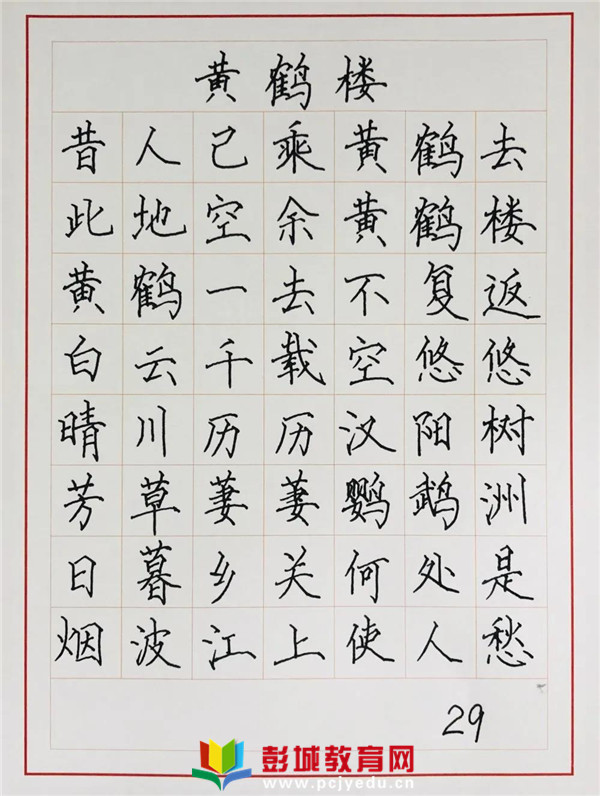 黄鹤楼
昔人已乘黄鹤去
此地空余黄鹤楼
黄鹤一去不复返
白云千载空悠悠
晴川历历汉阳树
芳草萋萋鹦鹉洲
日暮乡关何处是
烟波江上使人愁
29
彭城教育网
www.pcjyedu.cn